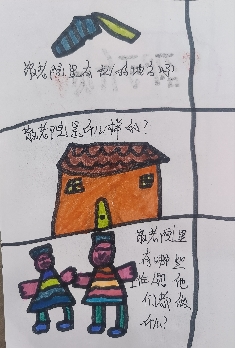 敬老院里有的地方
敬老院是什么样的?
敬老院里
有哪些
他
们都做
什么?